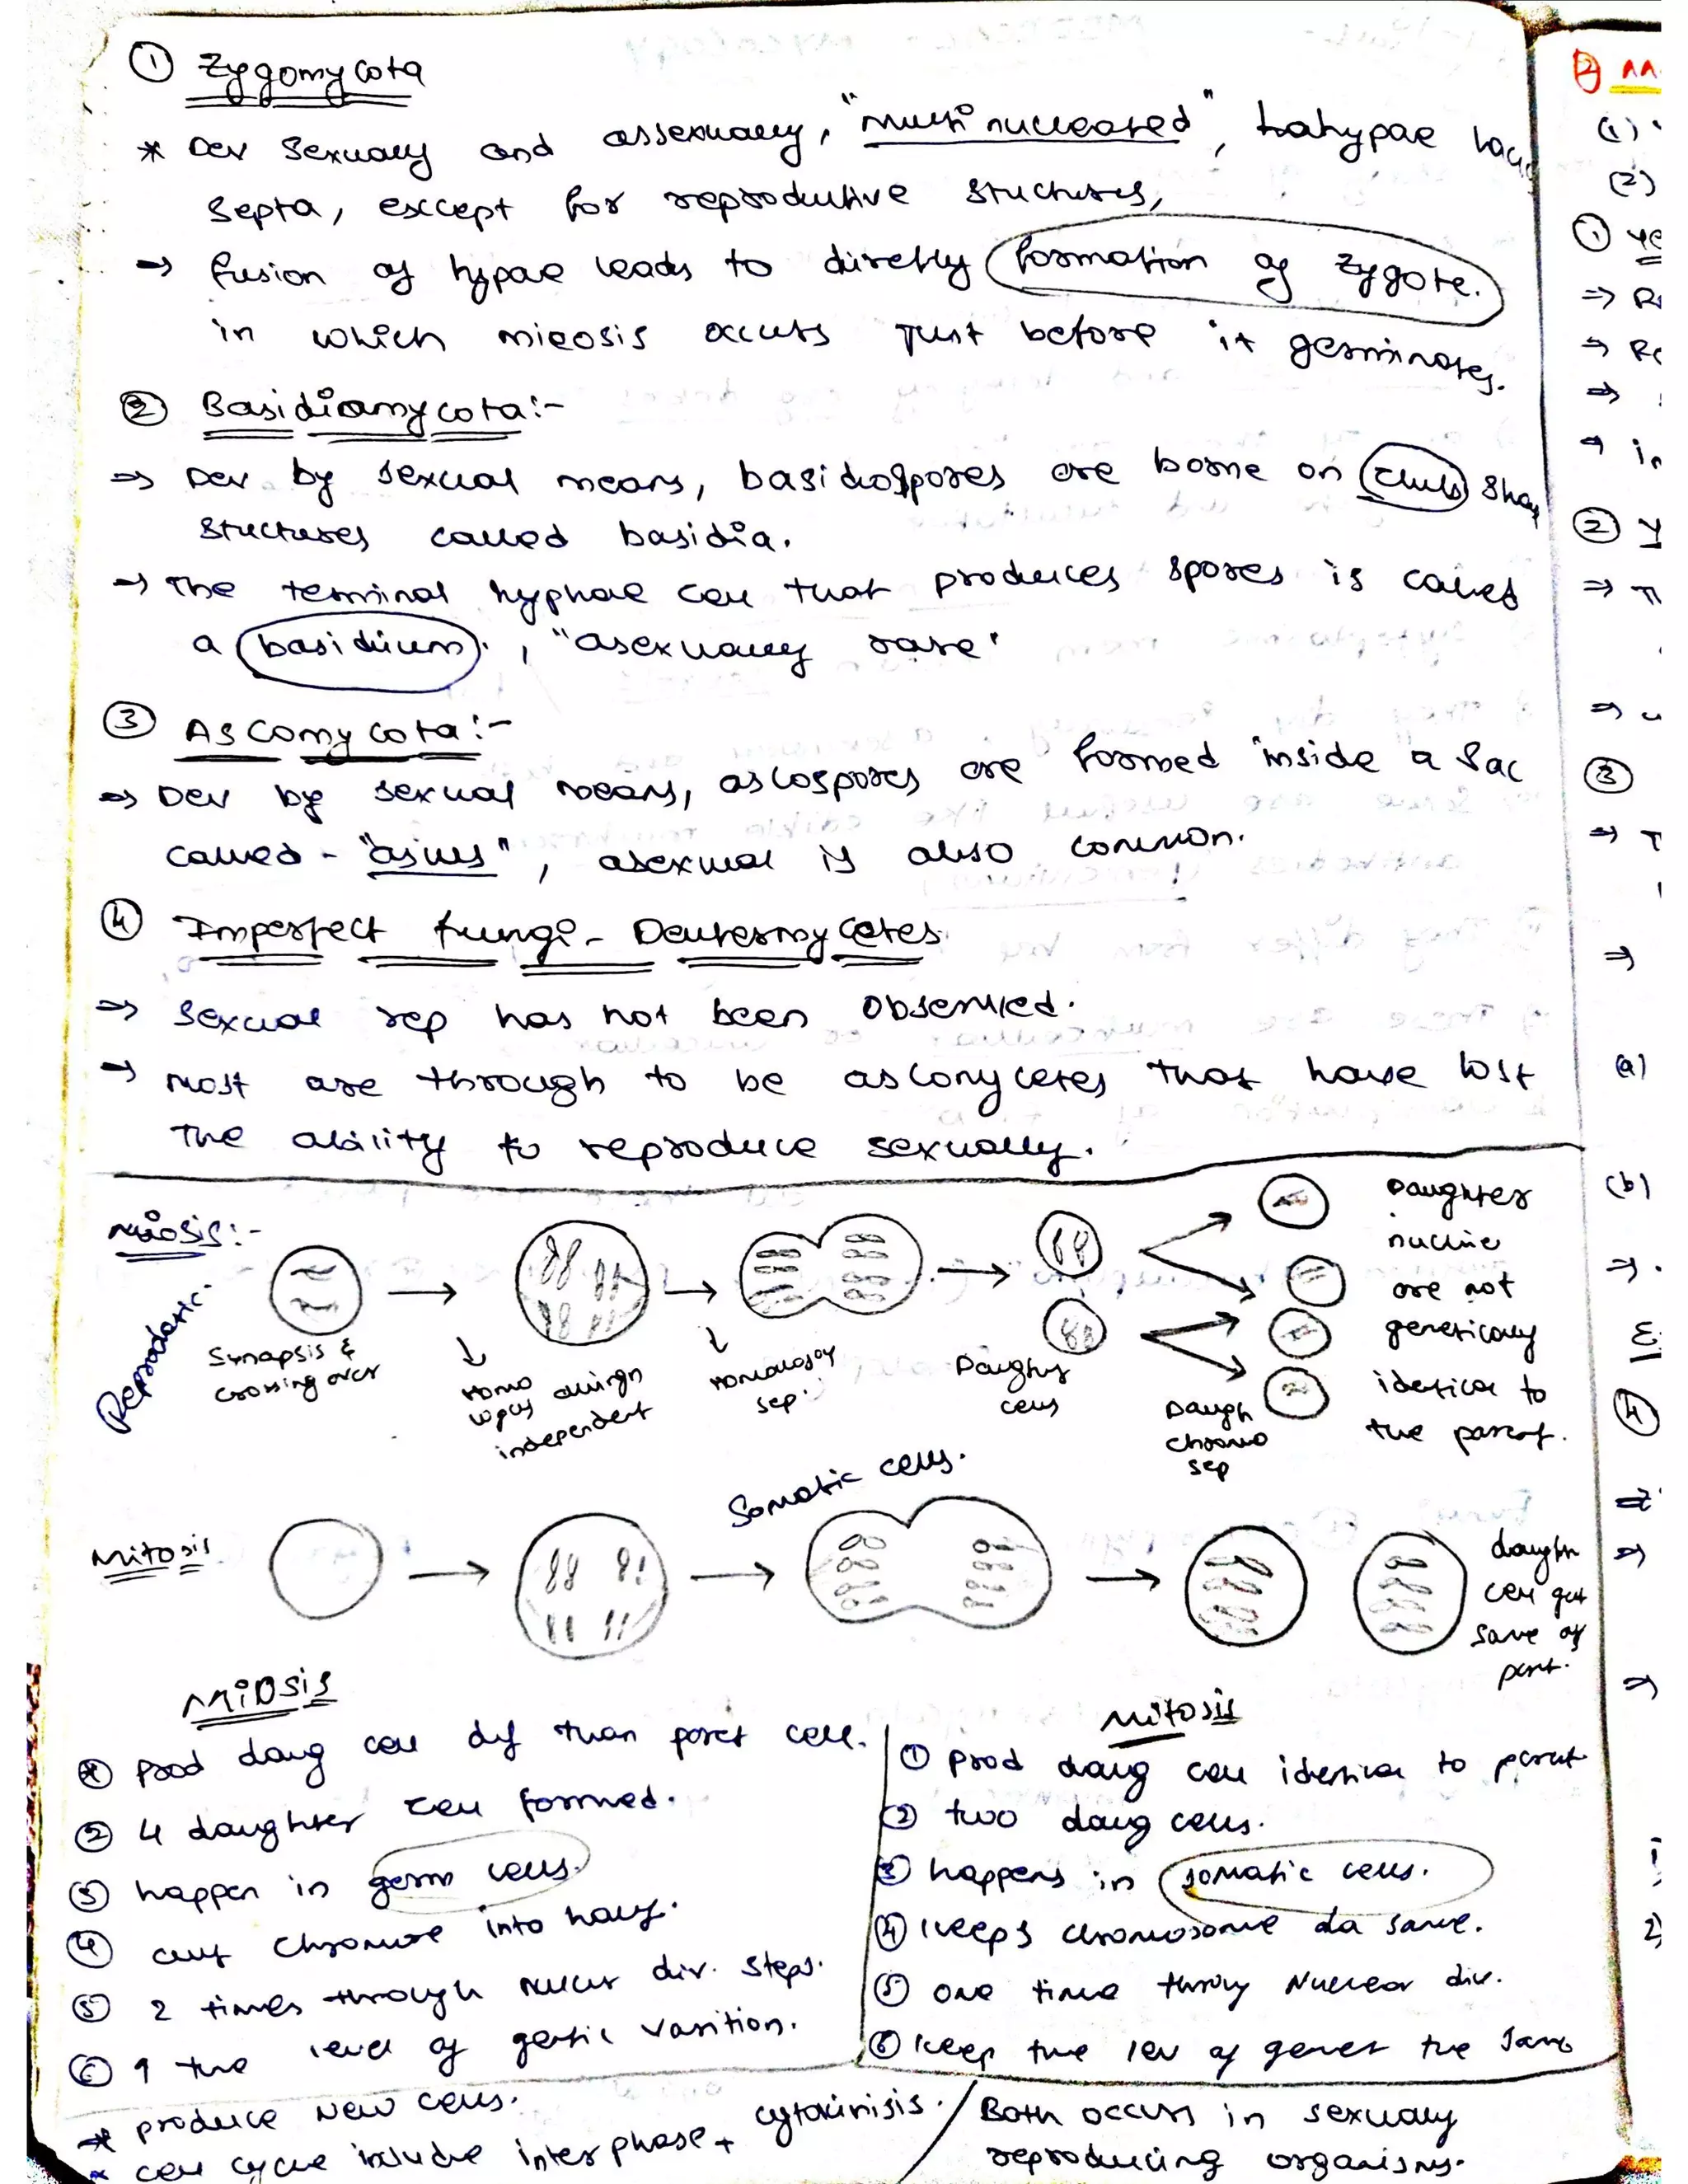 ① Zygomycota
* Dev Sexually and assexually, "multi nucleated", hahypae lack
septa, except for reprodutive stuctures,
→ fusion of hypae leads to directly formation of zygote.
in which mieosis occurs just before it germinates.
② Basidiomycota:-
⇒ Dev by sexual means, basidiospores are borne on club shap
stuctures called basidia.
→ The terminal hyphae cell that produces spores is called
a basidium, "asexually rare"
③ Ascomycota:-
⇒ Dev by sexual means, ascospores are formed inside a sac
called - "ascus", asexual is also common.
④ Imperfect fungi - Deutermycetes
⇒ Sexual rep has not been observed.
→ Most are through to be ascomycetes that have lost
the ability to reproduce sexually.
Miosis:-
Synapsis &
crossing over
Homo
logus
independent
sep.
Daughter
cells
Daugh
chromo
sep
Daughter
are not
genetically
identical to
the parent.
Somatic cells.
Mitosis
daughter
cell get
same of
Miosis
① prod daug cell dif than paret cell.
② 4 daughter cell formed.
③ happen in germ cells.
④ cut chromose into half.
⑤ 2 times through nuclear div. steps.
⑥ ↑ the level of gentic varition.
Mitosis
① prod daug cell identical to parent
② two daug cells.
③ happens in somatic cells.
④ keeps chromosome da same.
⑤ one time throug Nuclear div.
⑥ keep the lev of genet the same
* produce New cells.
* cell cycle include interphase + cytokinisis.
Both occurs in sexually
reproducing organisms.